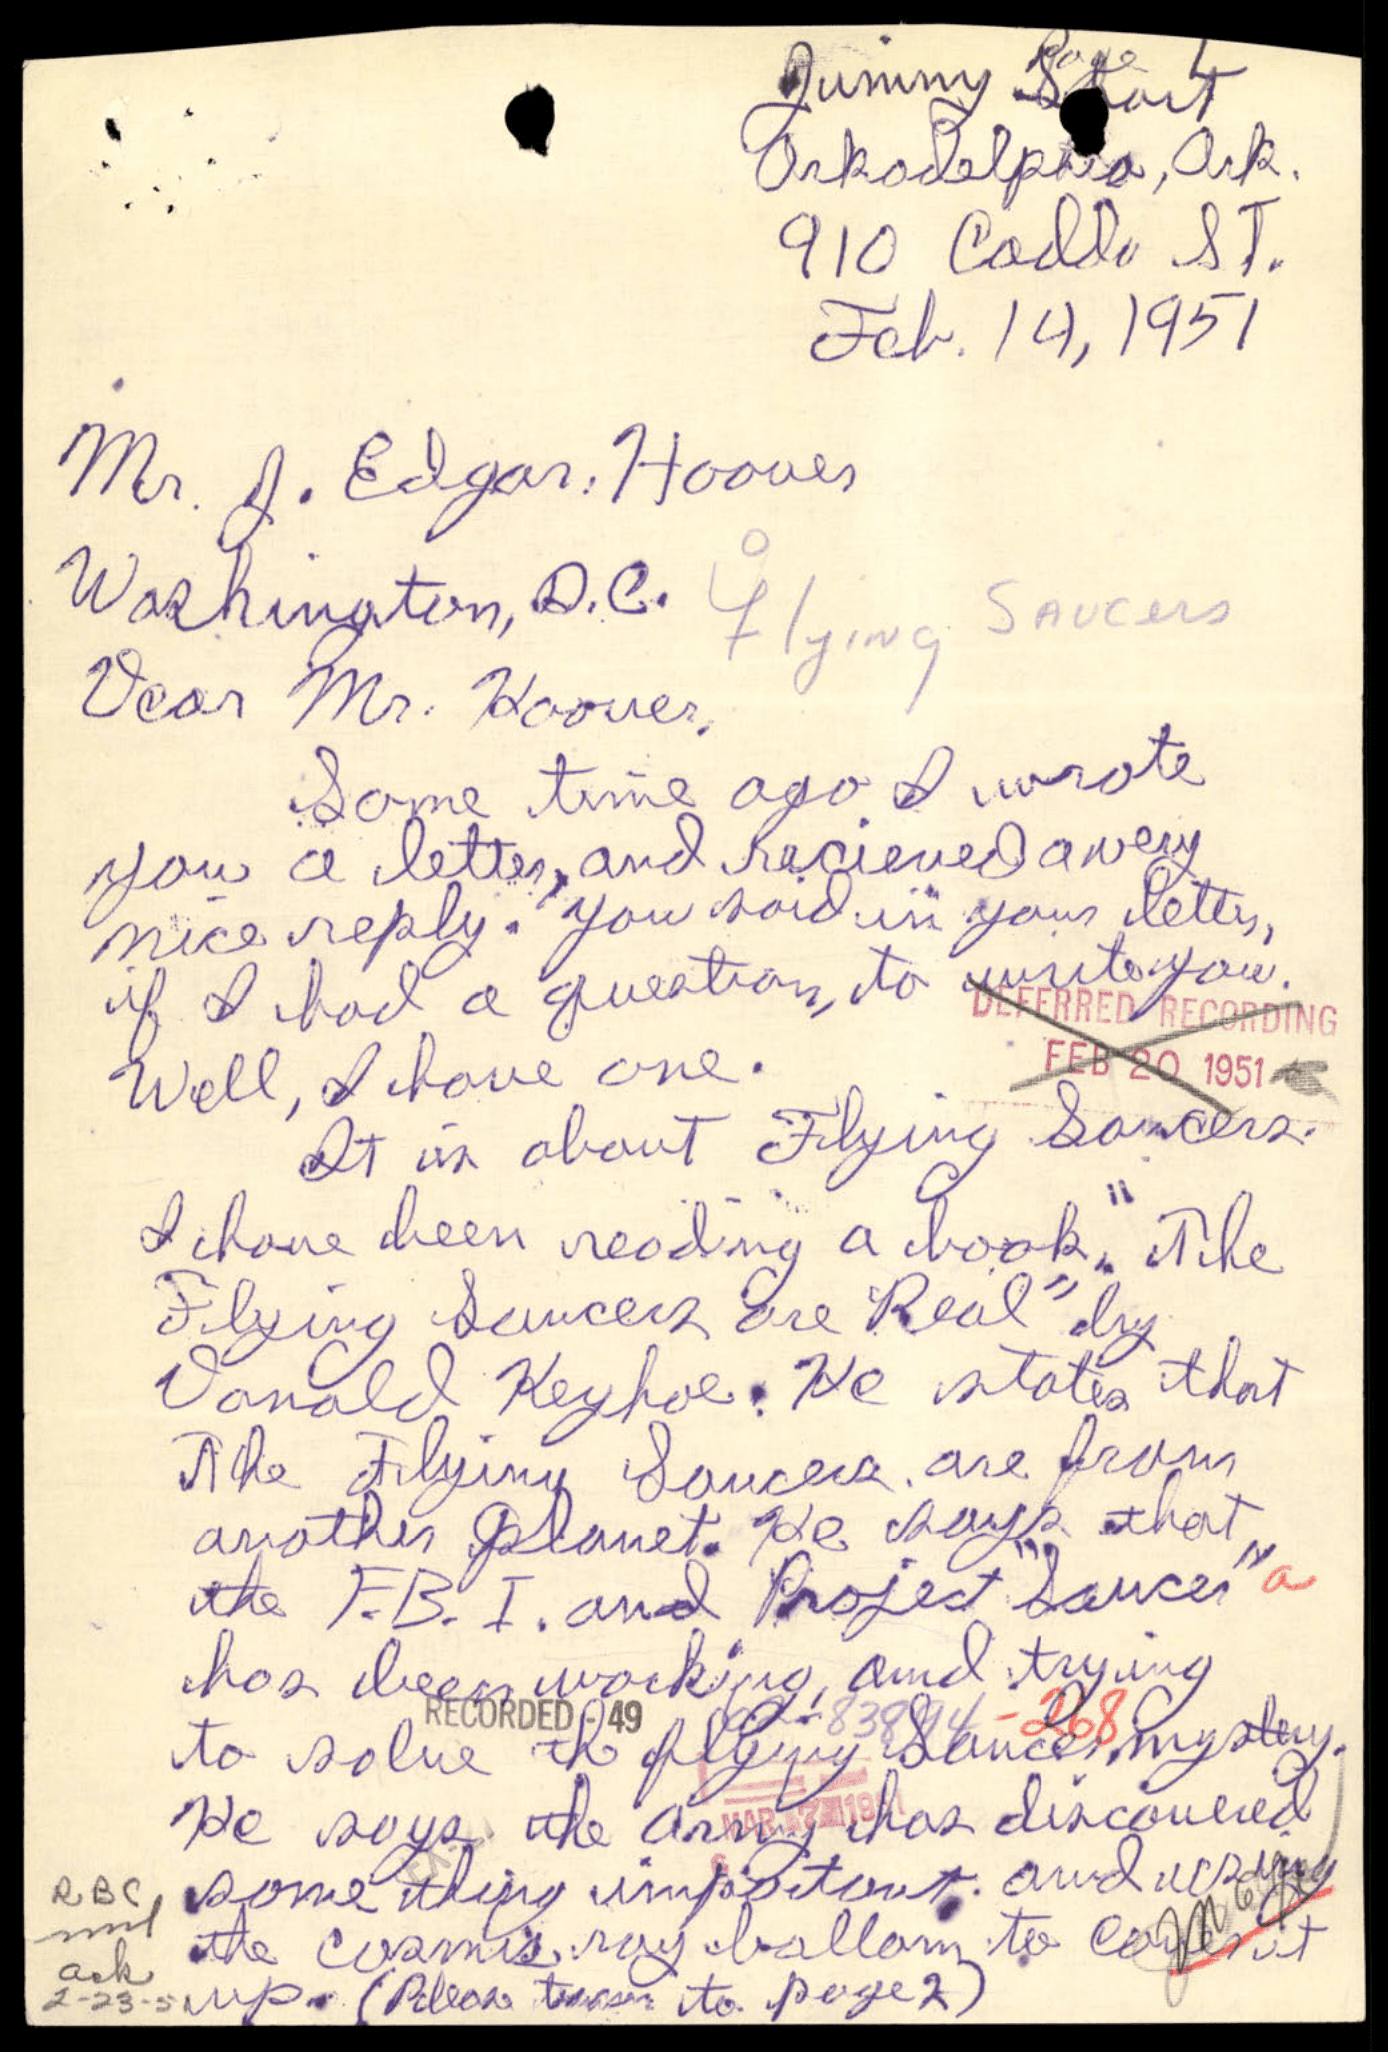 Page 1
Jimmy Short
Arkadelphia, Ark.
910 Caddo ST.
Feb. 14, 1951
Mr. J. Edgar. Hoover
Washington, D.C.
Flying Saucers
Dear Mr. Hoover,
Some time ago I wrote
you a letter, and recieved a very
nice reply. You said in your letter,
if I had a question, to write you.
DEFERRED RECORDING
FEB 20 1951
Well, I have one.
It is about Flying Saucers.
I have been reading a book, "The
Flying Saucers are Real" by
Donald Keyhoe. He states that
The Flying Saucers are from
another planet. He says that
the F.B.I. and Project "Saucer" a
has been working, and trying
RECORDED - 49
62-83894-268
to solve th flying Saucer mystery.
MAR 7 1951
He says the army has discovered
some thing important and using
the cosmic ray ballom to cover it
up. (Please turn to page 2)
RBC
ack
2-23-51